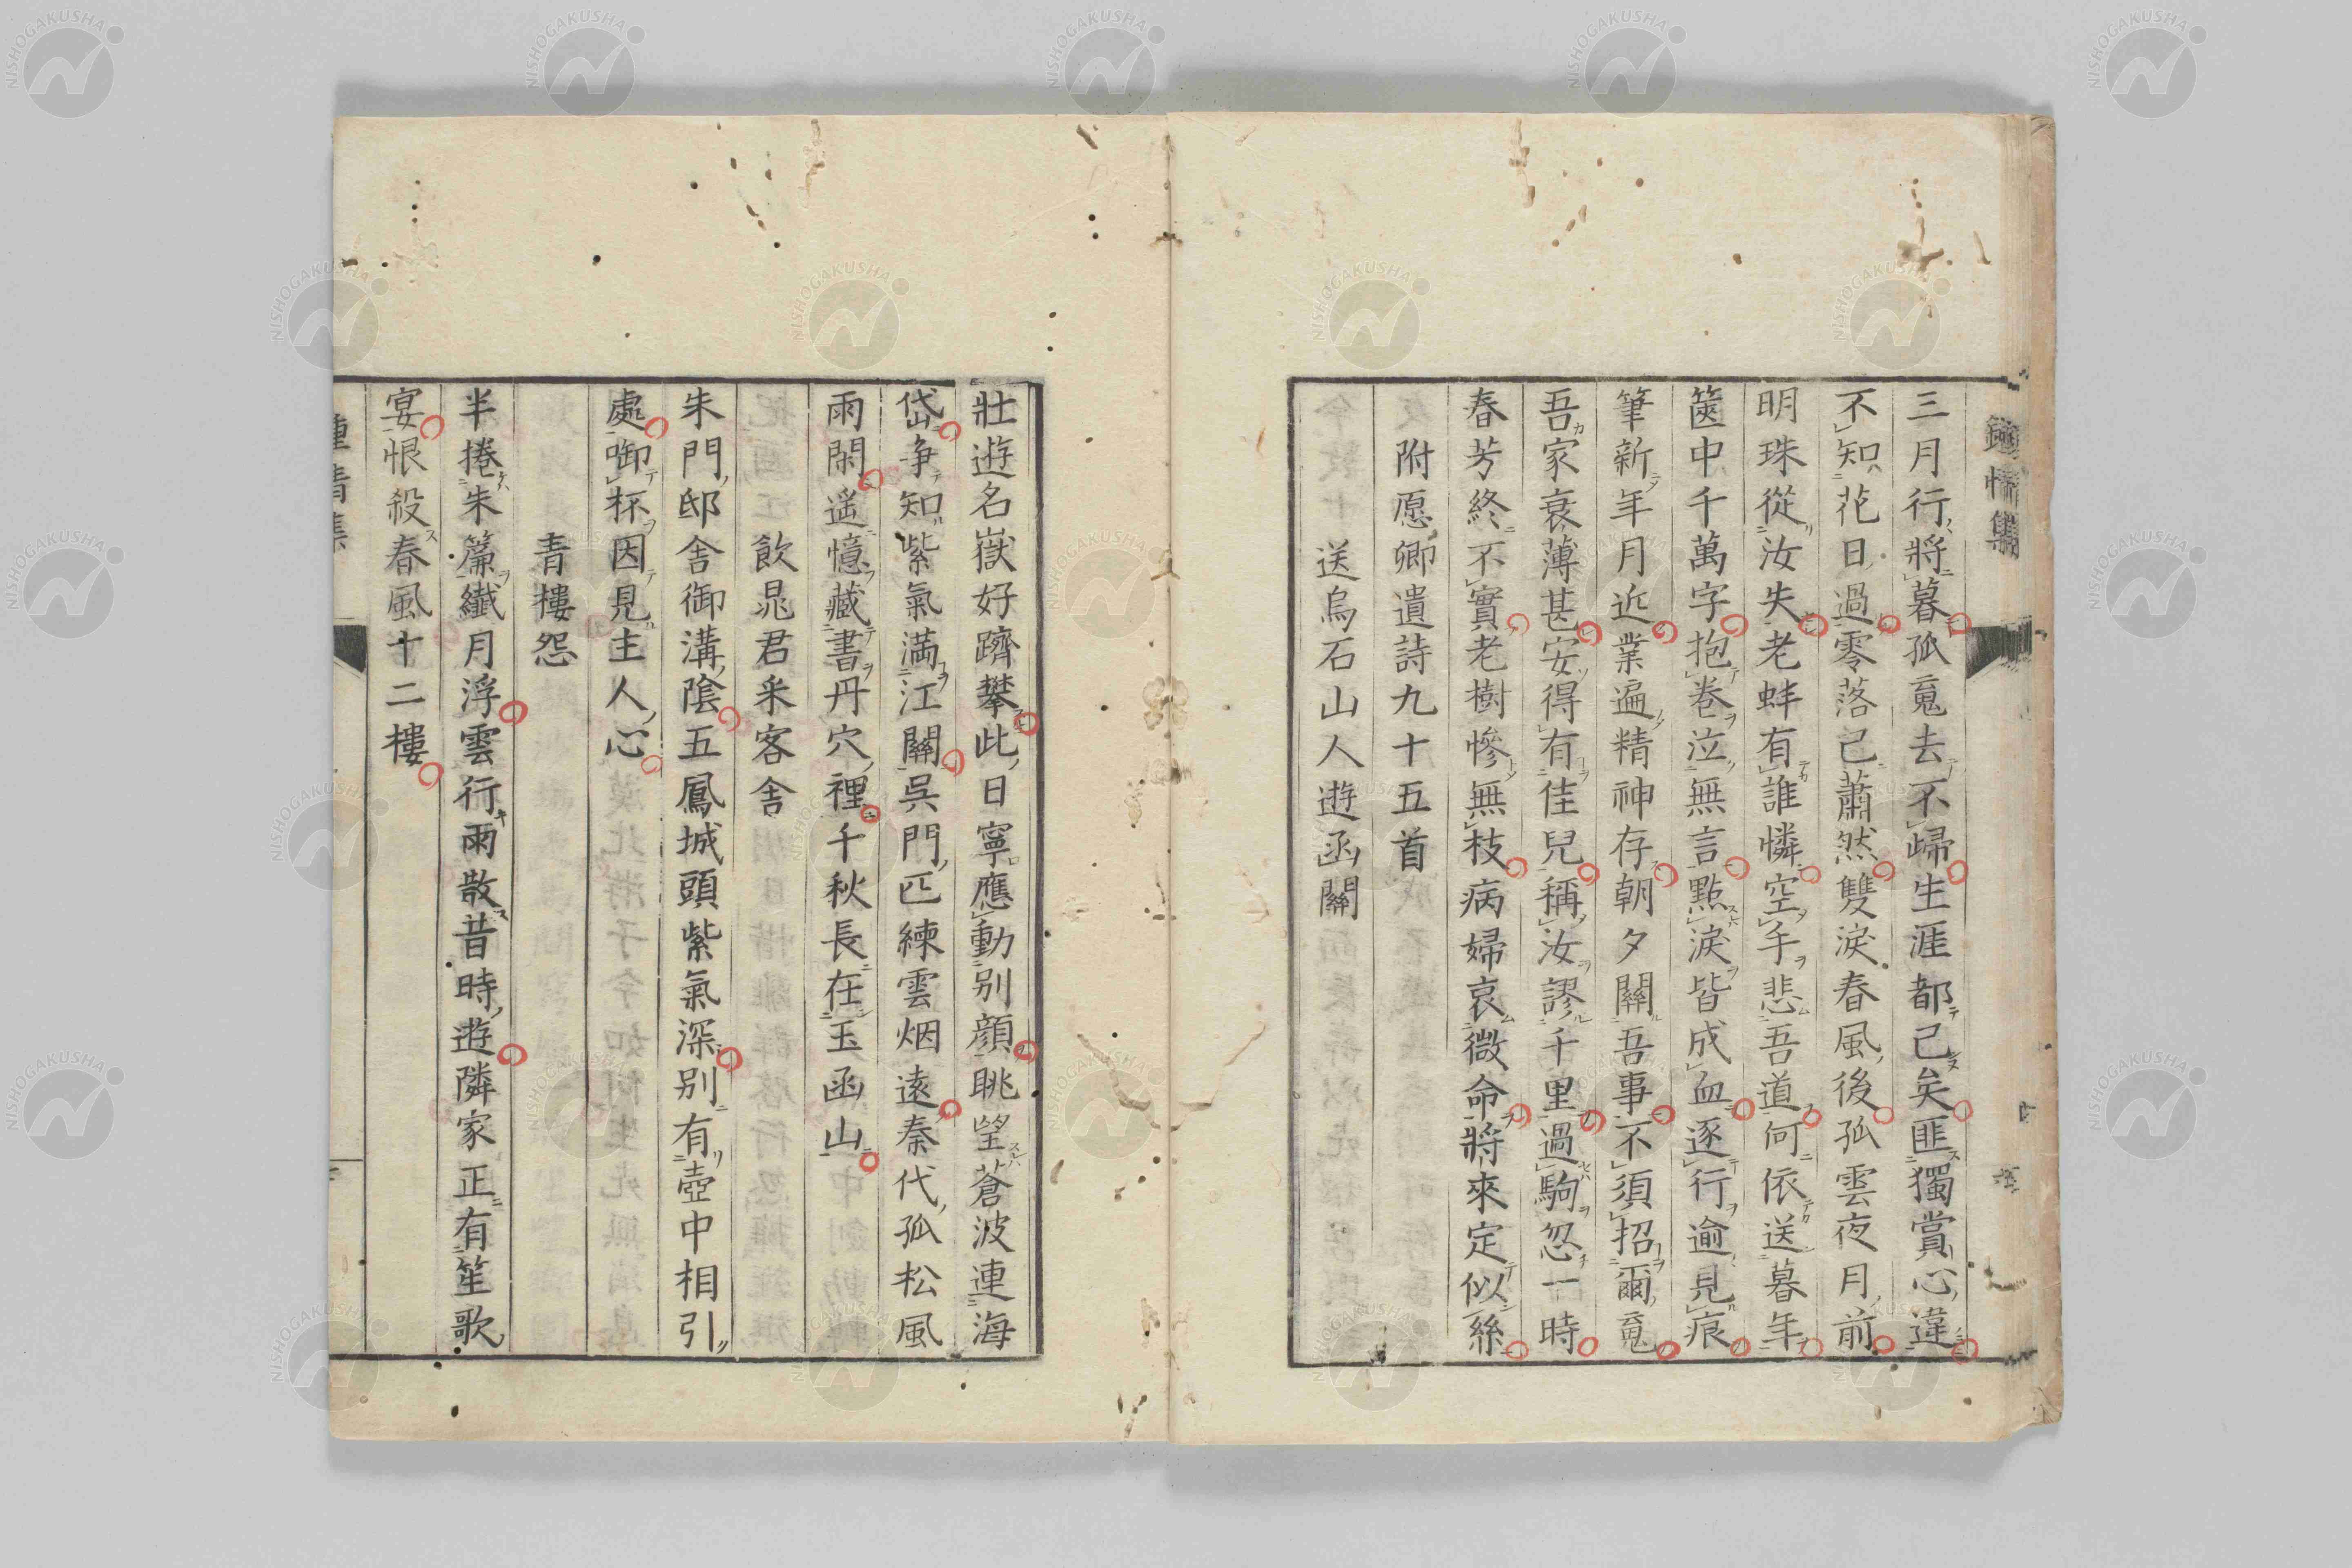 鍾情集
三月行將暮孤䰟去不歸生涯都已矣匪獨賞心違
不知花日過零落已蕭然雙淚春風後孤雲夜月前
明珠從汝失老蚌有誰憐空手悲吾道何依送暮年
篋中千萬字抱卷泣無言點淚皆成血逐行逾見痕
筆新年月近業遍精神存朝夕關吾事不須招爾䰟
吾家衰薄甚安得有佳兒稱汝謬千里過駒忽一時
春芳終不實老樹慘無枝病婦哀微命將來定似絲
附愿卿遺詩九十五首
送烏石山人遊函關
壯遊名嶽好躋攀此日寧應動別顔眺望蒼波連海
岱爭知紫氣滿江關吳門匹練雲烟遠秦代孤松風
雨閑遥憶藏書丹穴裡千秋長在玉函山
飲晁君采客舍
朱門邸舍御溝陰五鳳城頭紫氣深別有壺中相引
處啣杯因見主人心
青樓怨
半捲朱簾纖月浮雲行雨散昔時遊隣家正有笙歌
宴恨殺春風十二樓
鍾情集
NISHOGAKUSHA